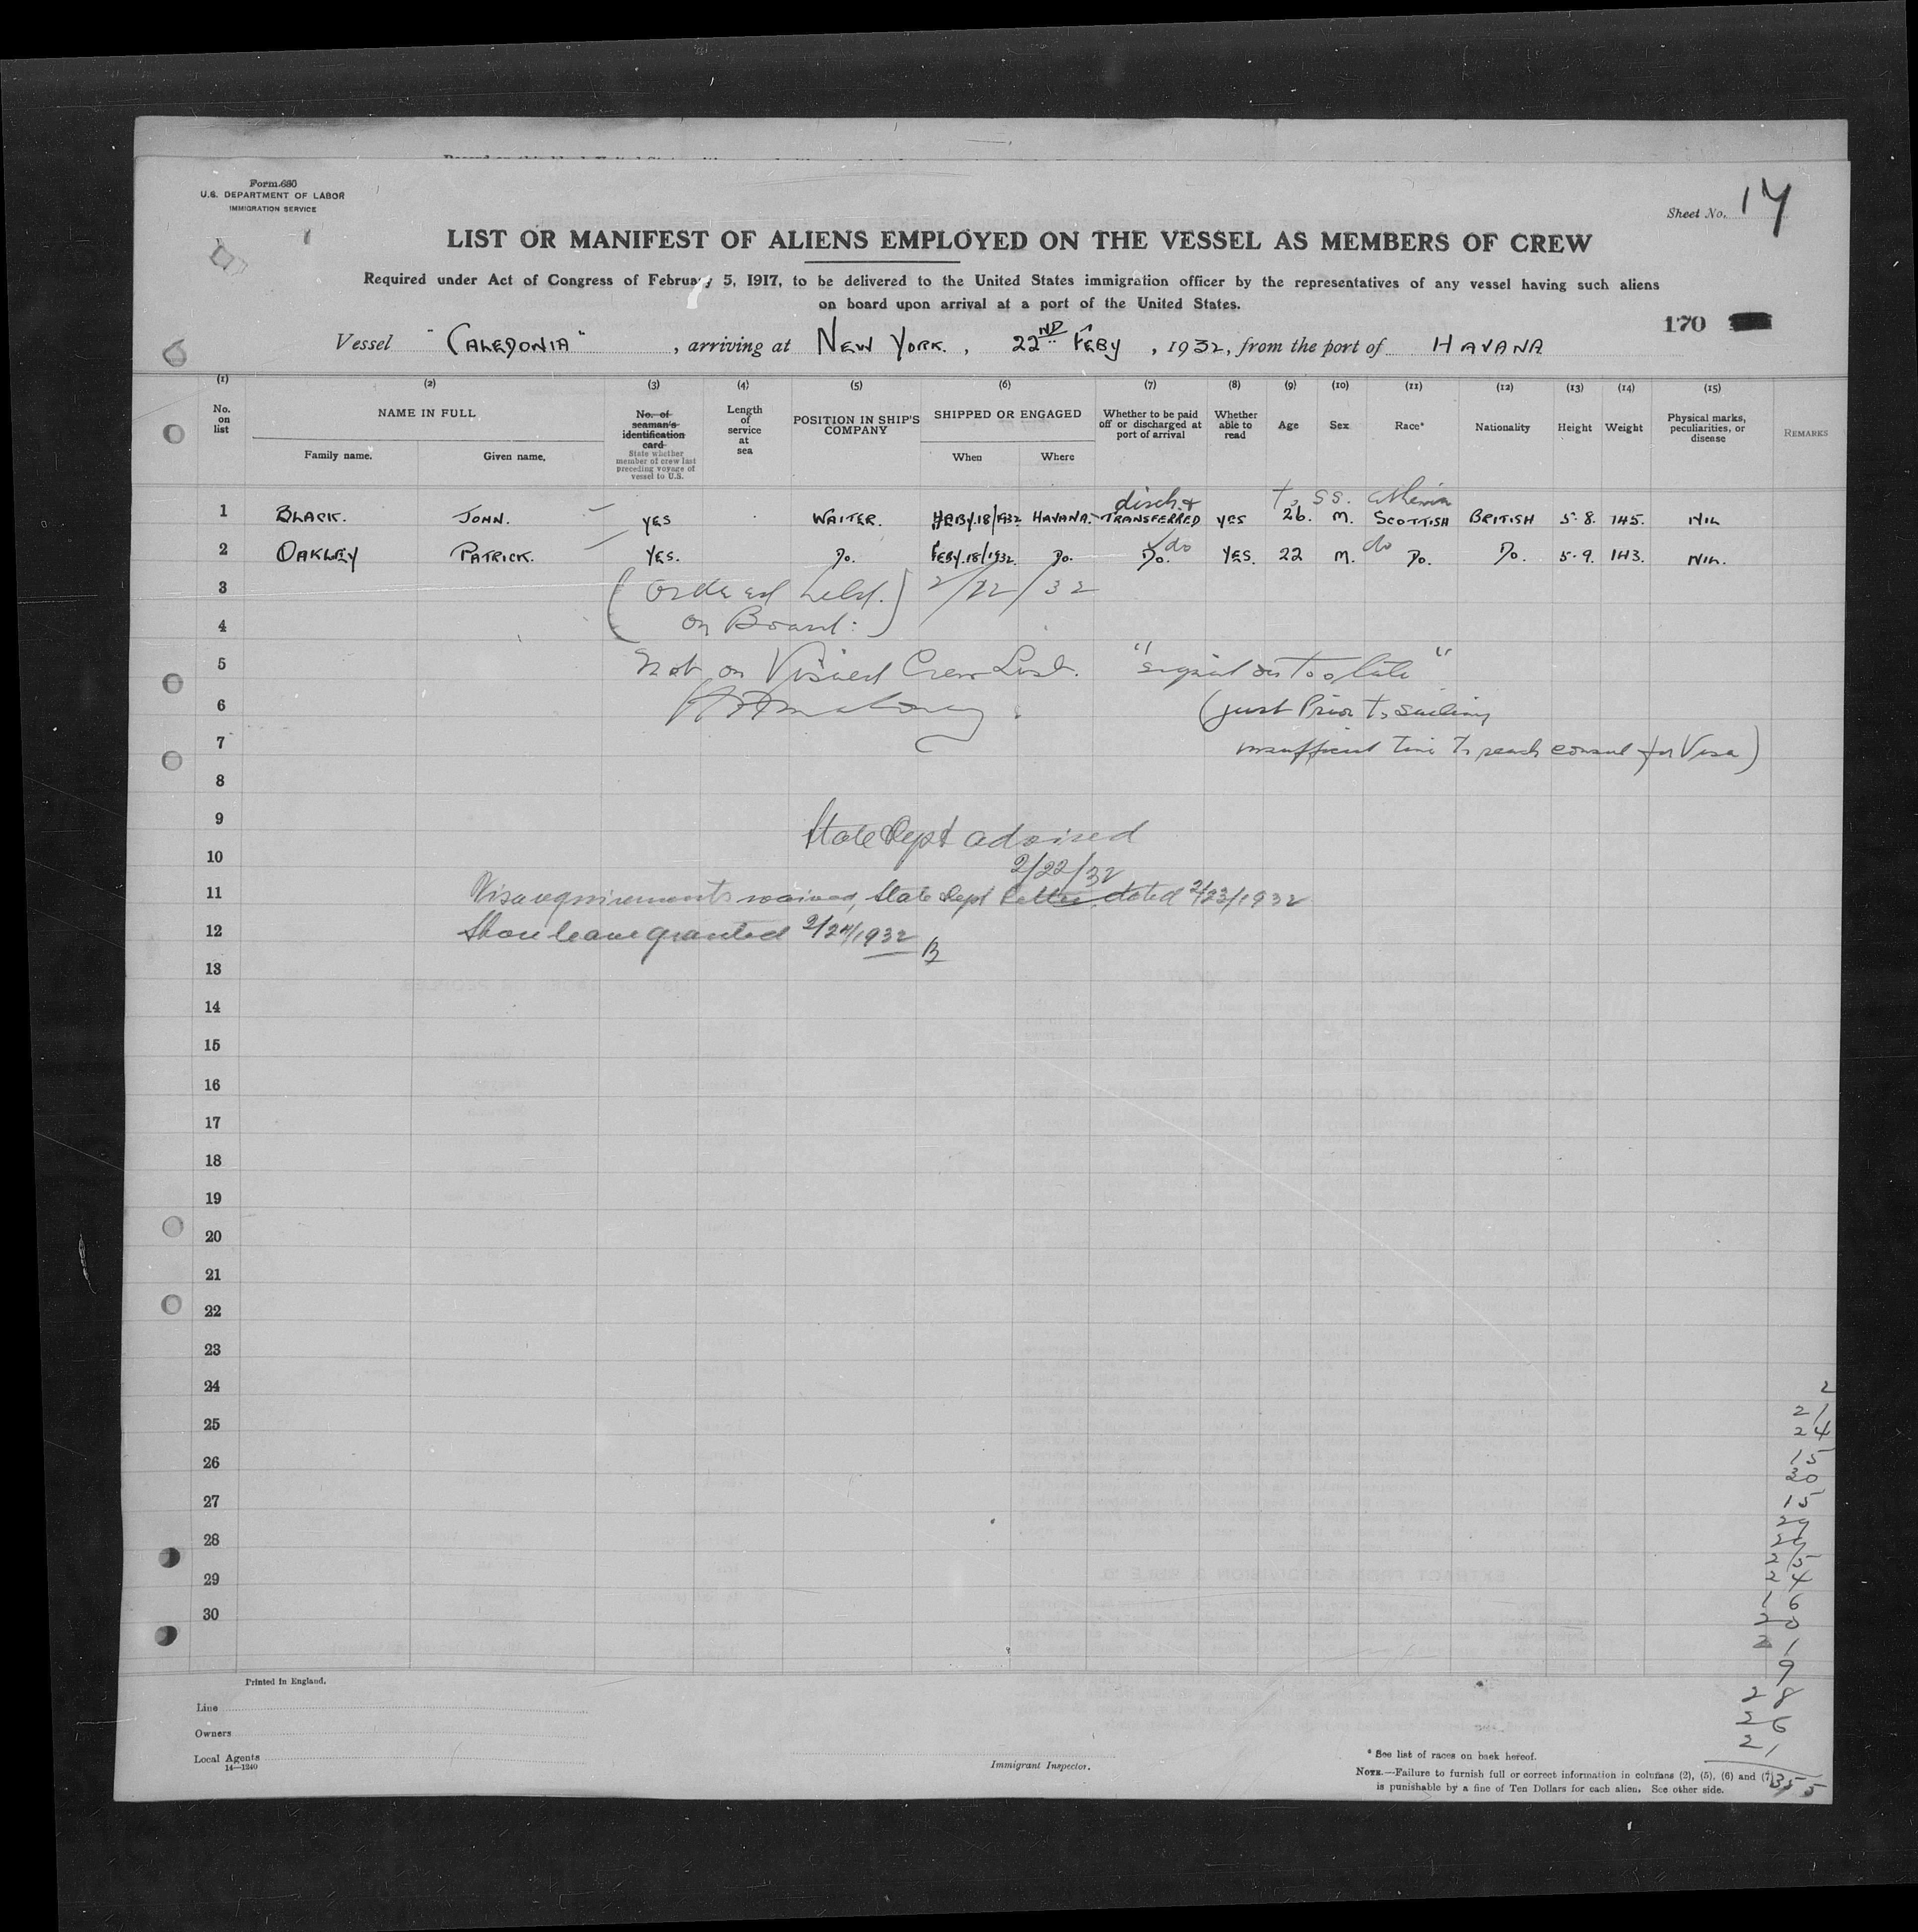 Form 680
U.S. DEPARTMENT OF LABOR
IMMIGRATION SERVICE
Sheet No. 17
LIST OR MANIFEST OF ALIENS EMPLOYED ON THE VESSEL AS MEMBERS OF CREW
Required under Act of Congress of February 5, 1917, to be delivered to the United States immigration officer by the representatives of any vessel having such aliens
on board upon arrival at a port of the United States.
170
Vessel "CALEDONIA", arriving at NEW YORK., 22ND FEBY, 1932, from the port of HAVANA
(1) (2) (3) (4) (5) (6) (7) (8) (9) (10) (11) (12) (13) (14) (15)
No. on list
NAME IN FULL
Family name. Given name.
No. of seaman's identification card
State whether member of crew last preceding voyage of vessel to U.S.
Length of service at sea
POSITION IN SHIP'S COMPANY
SHIPPED OR ENGAGED
When Where
Whether to be paid off or discharged at port of arrival
Whether able to read
Age
Sex
Race*
Nationality
Height
Weight
Physical marks, peculiarities, or disease
REMARKS
disch & to SS.
1 BLACK. JOHN. YES WAITER. FEBY.18/1932 HAVANA. TRANSFERRED YES 26. M. SCOTTISH BRITISH 5-8. 145. NIL
do do
2 OAKLEY PATRICK. YES. DO. FEBY.18/1932. DO. DO. YES. 22 M. DO. DO. 5-9. 143. NIL.
3 (Ordered held. 2/22/32
4 on Board:)
5 Not on Visaed Crew List. "signed on too late"
6 (just Prior to sailing
7 insufficient time to reach consul for Visa)
8
9 State Dept advised
10 2/22/32
11 Visa requirements waived, State Dept Letter dated 2/23/1932
12 Shore leave granted 2/24/1932 B
13
14
15
16
17
18
19
20
21
22
23
24
25
26
27
28
29
30
2
21
24
15
30
15
29
29
25
24
16
20
21
9
28
26
21
355
Printed in England.
Line
Owners
Local Agents
14—1240
Immigrant Inspector.
* See list of races on back hereof.
NOTE.—Failure to furnish full or correct information in columns (2), (5), (6) and (7)
is punishable by a fine of Ten Dollars for each alien. See other side.